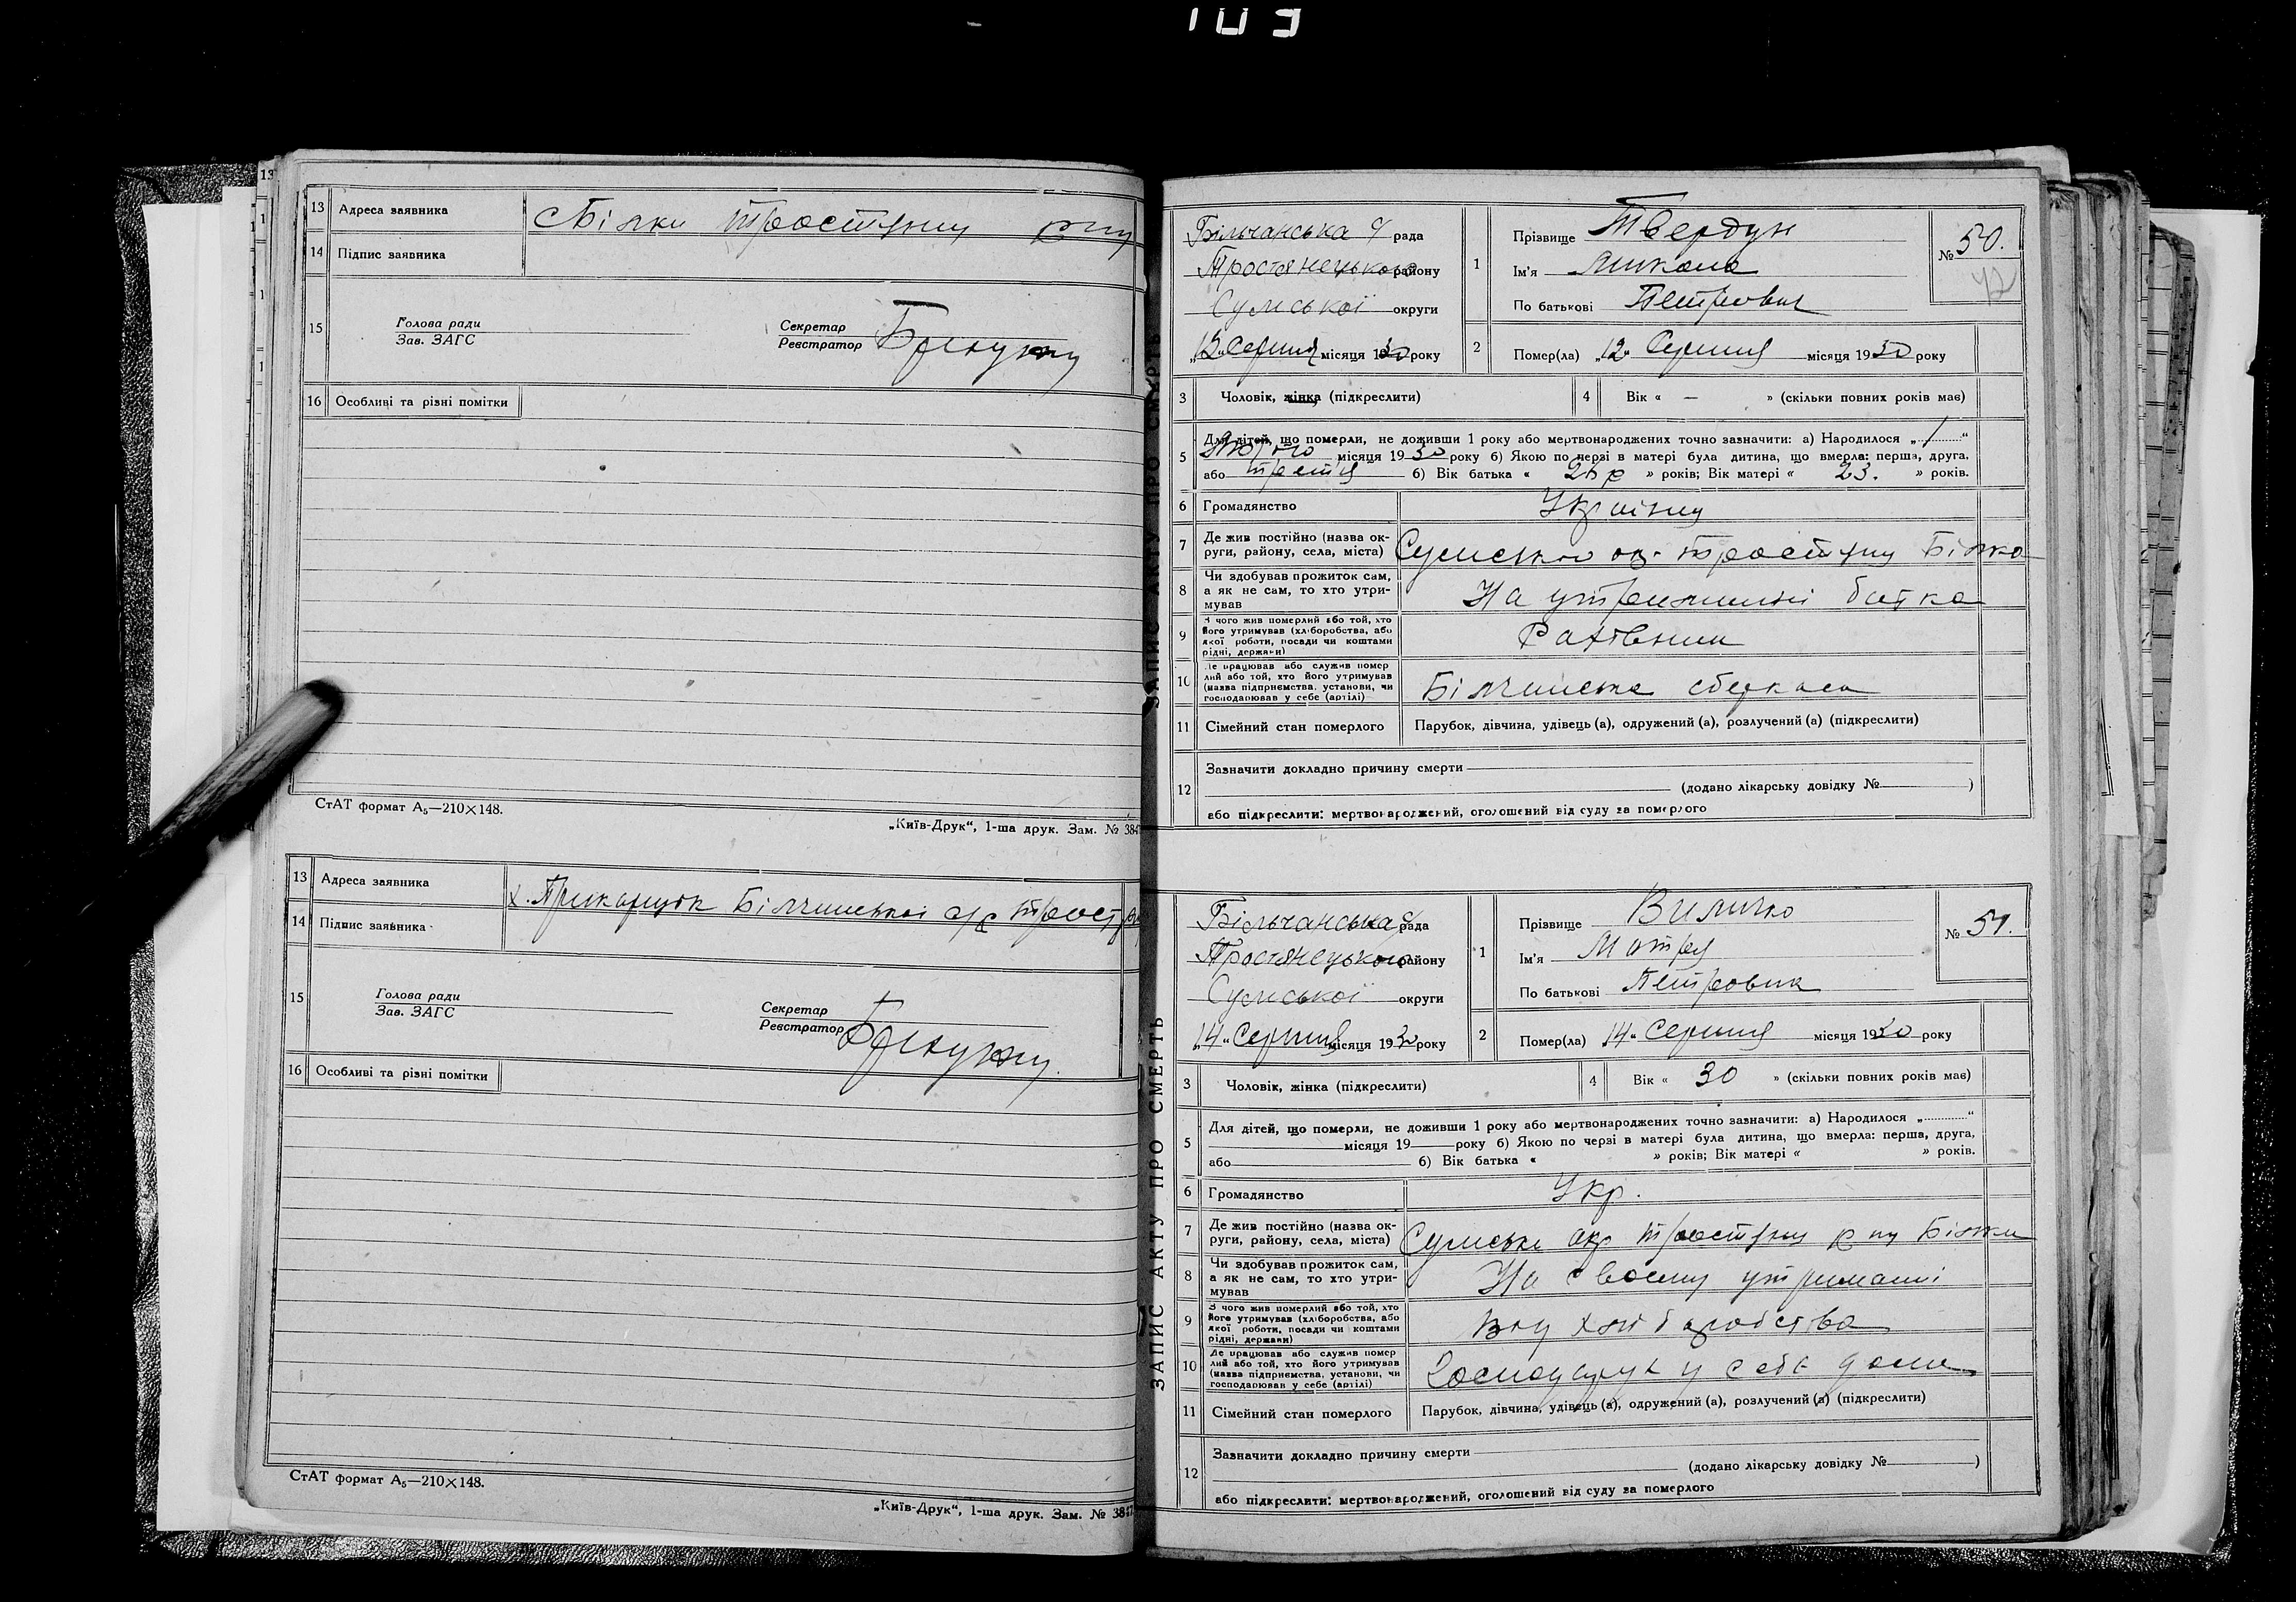 103
13
13 Адреса заявника Білки
14 Підпис заявника
15 Голова ради Секретар
Зав. ЗАГС Реєстратор
16 Особливі та різні помітки
СтАТ формат А₅—210×148.
„Київ-Друк“, 1-ша друк. Зам. № 384
13 Адреса заявника х.
14 Підпис заявника
15 Голова ради Секретар
Зав. ЗАГС Реєстратор
16 Особливі та різні помітки
СтАТ формат А₅—210×148.
„Київ-Друк“, 1-ша друк. Зам. № 38
ЗАПИС АКТУ ПРО СМЕРТЬ
Більчанська рада
Тростянецького району
Сумської округи
„12“ Серпня місяця 1930 року
1 Прізвище Твердун
Ім'я Микола
По батькові Петрович
№ 50.
42
2 Помер(ла) „12“ Серпня місяця 1930 року
3 Чоловік, жінка (підкреслити) 4 Вік « — » (скільки повних років має)
5 Для дітей, що померли, не доживши 1 року або мертвонароджених точно зазначити: а) Народилося „ 1 “
Лютого місяця 1930 року б) Якою по черзі в матері була дитина, що вмерла: перша, друга,
або третя б) Вік батька « » років; Вік матері « 23. » років.
6 Громадянство
7 Де жив постійно (назва ок-
руги, району, села, міста)
8 Чи здобував прожиток сам, На утриманні батка
а як не сам, то хто утри-
мував
9 З чого жив померлий або той, хто Рахівник
його утримував (хліборобства, або
якої роботи, посади чи коштами
рідні, держави)
10 Де працював або служив помер
лий або той, хто його утримував
(назва підприємства, установи, чи
господарював у себе (артілі)
11 Сімейний стан померлого Парубок, дівчина, удівець (а), одружений (а), розлучений (а) (підкреслити)
12 Зазначити докладно причину смерти
(додано лікарську довідку № )
або підкреслити: мертвонароджений, оголошений від суду за померлого
ЗАПИС АКТУ ПРО СМЕРТЬ
Більчанська рада
Тростянецького району
Сумської округи
„14“ Серпня місяця 1930 року
1 Прізвище
Ім'я Мотря
По батькові Петровна
№ 51.
2 Помер(ла) „14“ Серпня місяця 1930 року
3 Чоловік, жінка (підкреслити) 4 Вік « 30 » (скільки повних років має)
5 Для дітей, що померли, не доживши 1 року або мертвонароджених точно зазначити: а) Народилося „ “
місяця 19 року б) Якою по черзі в матері була дитина, що вмерла: перша, друга,
або б) Вік батька « » років; Вік матері « » років.
6 Громадянство Укр.
7 Де жив постійно (назва ок-
руги, району, села, міста)
8 Чи здобував прожиток сам, На своєму утриманні
а як не сам, то хто утри-
мував
9 З чого жив померлий або той, хто хліборобства
його утримував (хліборобства, або
якої роботи, посади чи коштами
рідні, держави)
10 Де працював або служив помер у себе дома
лий або той, хто його утримував
(назва підприємства, установи, чи
господарював у себе (артілі)
11 Сімейний стан померлого Парубок, дівчина, удівець (а), одружений (а), розлучений (а) (підкреслити)
12 Зазначити докладно причину смерти
(додано лікарську довідку № )
або підкреслити: мертвонароджений, оголошений від суду за померлого